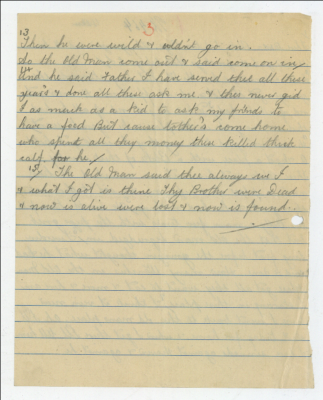 3
13
Then he were wild & uddn't go in.
So the Old Man come out & said come on in
14
And he said Father I have served thee all these
years & done all thee ask me & thee never gid
I as much as a kid to ask my friends to
have a feed But cause tother's come home
who spent all thy money thee killid theek
calf for he/
15/ The Old Man said thee always wi I
& what I got is thine Thy Brother were Dead
& now is alive were lost & now is found.